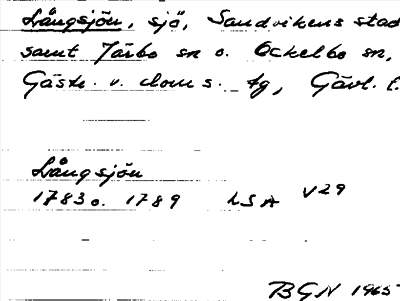 Långsjön, sjö, Sandvikens stad
samt Järbo sn o. Ockelbo sn,
Gästr. v. doms. tg, Gävl. l.
Långsjön
1783 o. 1789 LSA V29
BGN 1965